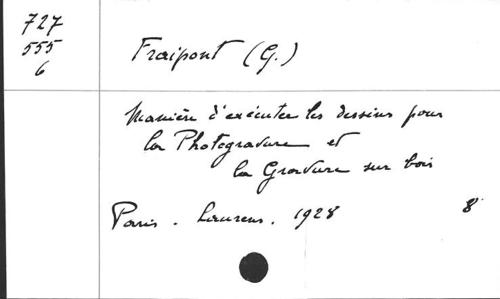 727
555
6
Fraipont (G.)
Manière d'exécuter les dessins pour
la Photogravure et
la Gravure sur bois
Paris - Laurens. 1928 8°